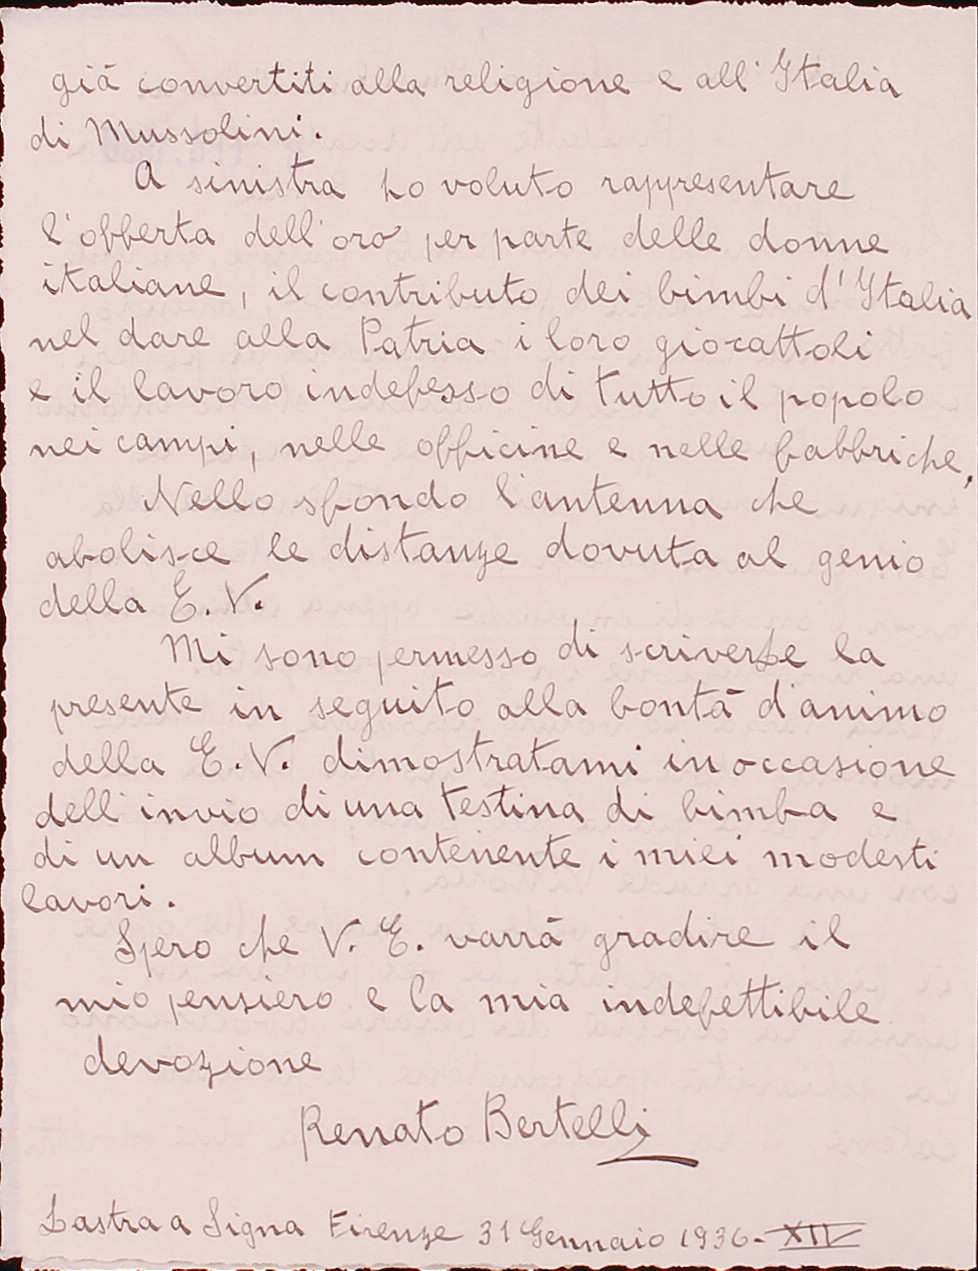 già convertiti alla religione e all'Italia
di Mussolini.
A sinistra ho voluto rappresentare
l'offerta dell'oro per parte delle donne
italiane, il contributo dei bimbi d'Italia
nel dare alla Patria i loro giocattoli
e il lavoro indefesso di tutto il popolo
nei campi, nelle officine e nelle fabbriche.
Nello sfondo l'antenna che
abolisce le distanze dovuta al genio
della E.V.
Mi sono permesso di scriverLe la
presente in seguito alla bontà d'animo
della E.V. dimostratami in occasione
dell'invio di una testina di bimba e
di un album contenente i miei modesti
lavori.
Spero che V.E. varrà gradire il
mio pensiero e la mia indefettibile
devozione
Renato Bertelli
Lastra a Signa Firenze 31 Gennaio 1936-XIV